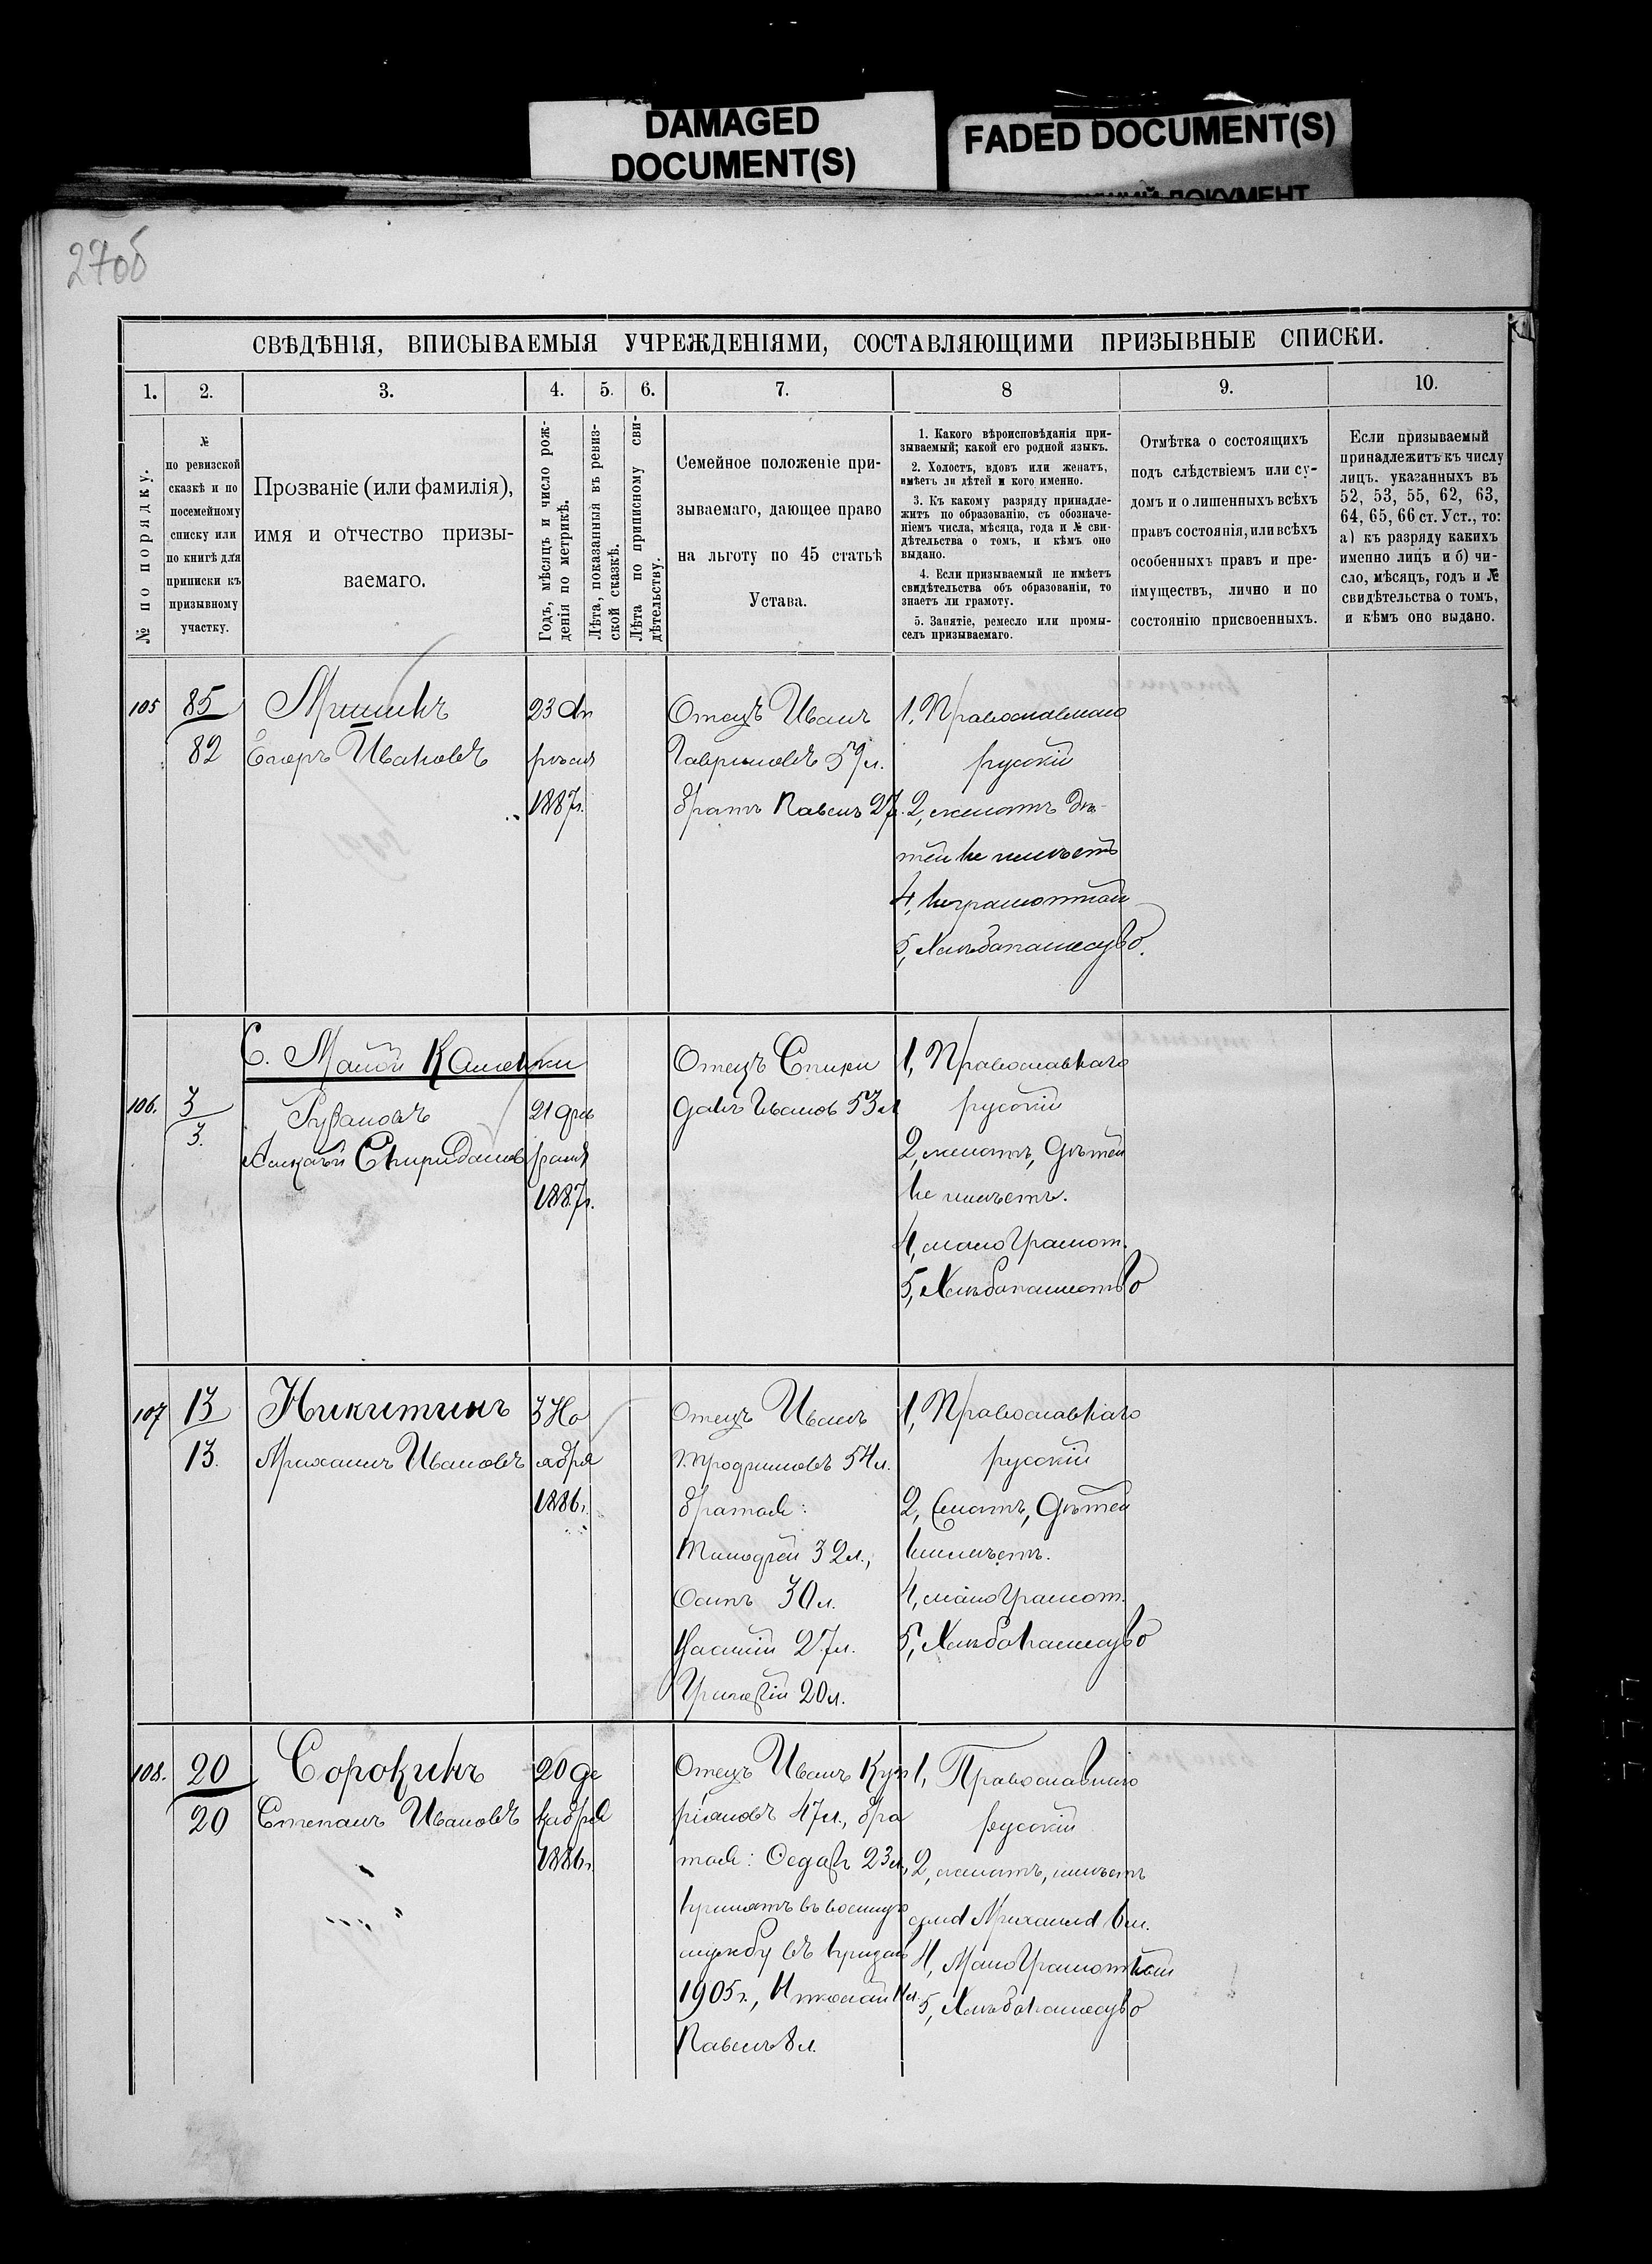 DAMAGED
DOCUMENT(S)
FADED DOCUMENT(S)
ДОКУМЕНТ
270б
СВѢДѢНІЯ, ВПИСЫВАЕМЫЯ УЧРЕЖДЕНІЯМИ, СОСТАВЛЯЮЩИМИ ПРИЗЫВНЫЕ СПИСКИ.
1.
2.
3.
4.
5.
6.
7.
8
9.
10.
№ по порядку.
№
по ревизской
сказкѣ и по
посемейному
списку или
по книгѣ для
приписки къ
призывному
участку.
Прозваніе (или фамилія),
имя и отчество призы-
ваемаго.
Годъ, мѣсяцъ и число рож-
денія по метрикѣ.
Лѣта, показанныя въ ревиз-
ской сказкѣ.
Лѣта по приписному сви-
дѣтельству.
Семейное положеніе при-
зываемаго, дающее право
на льготу по 45 статьѣ
Устава.
1. Какого вѣроисповѣданія при-
зываемый; какой его родной языкъ.
2. Холостъ, вдовъ или женатъ,
имѣетъ ли дѣтей и кого именно.
3. Къ какому разряду принадле-
житъ по образованію, съ обозначе-
ніемъ числа, мѣсяца, года и № сви-
дѣтельства о томъ, и кѣмъ оно
выдано.
4. Если призываемый не имѣетъ
свидѣтельства объ образованіи, то
знаетъ ли грамоту.
5. Занятіе, ремесло или промы-
селъ призываемаго.
Отмѣтка о состоящихъ
подъ слѣдствіемъ или су-
домъ и о лишенныхъ всѣхъ
правъ состоянія, или всѣхъ
особенныхъ правъ и пре-
имуществъ, лично и по
состоянію присвоенныхъ.
Если призываемый
принадлежитъ къ числу
лицъ, указанныхъ въ
52, 53, 55, 62, 63,
64, 65, 66 ст. Уст., то:
а) къ разряду какихъ
именно лицъ и б) чи-
сло, мѣсяцъ, годъ и №
свидѣтельства о томъ,
и кѣмъ оно выдано.
105
85
82
Мишинъ
Егоръ Ивановъ
23 Ап
рѣля
1887г.
Отецъ Иванъ
Гавриловъ 57л.
братъ Павелъ 27
1, Православнаго
русскій
2, женатъ дѣ-
тей не имѣетъ
4, неграмотный
5, Хлѣбопашество.
С. Малой Каменки
106.
3
3.
Алексѣй Спиридонов
21 Фев
раля
1887г.
Отецъ Спири
донъ Иванов 53л
1, Православнаго
русскій
2, женатъ, дѣтей
не имѣетъ.
4, малограмот.
5, Хлѣбопашество
107
13
13.
Никитинъ
Михаилъ Ивановъ
3 Но
ября
1886г.
Отецъ Иванъ
Трофимовъ 54л.
братья:
Тимофей 32л.,
Осипъ 30л.
27л.
20л.
1, Православнаго
русскій
2, женатъ, дѣтей
неимѣетъ.
4, малограмот.
5, Хлѣбопашество
108.
20
20
Сорокинъ
Степанъ Ивановъ
20 де
кабря
1886г.
Отецъ Иванъ Куп
ріяновъ 47л., бра
тья: 23л,
принятъ въ военную
службу въ призыв
1905г., Николай 11л.
Павелъ 8л.
1, Православнаго
русскій
2, женатъ, имѣетъ
сына Михаила
4, Малограмотный
5, Хлѣбопашество